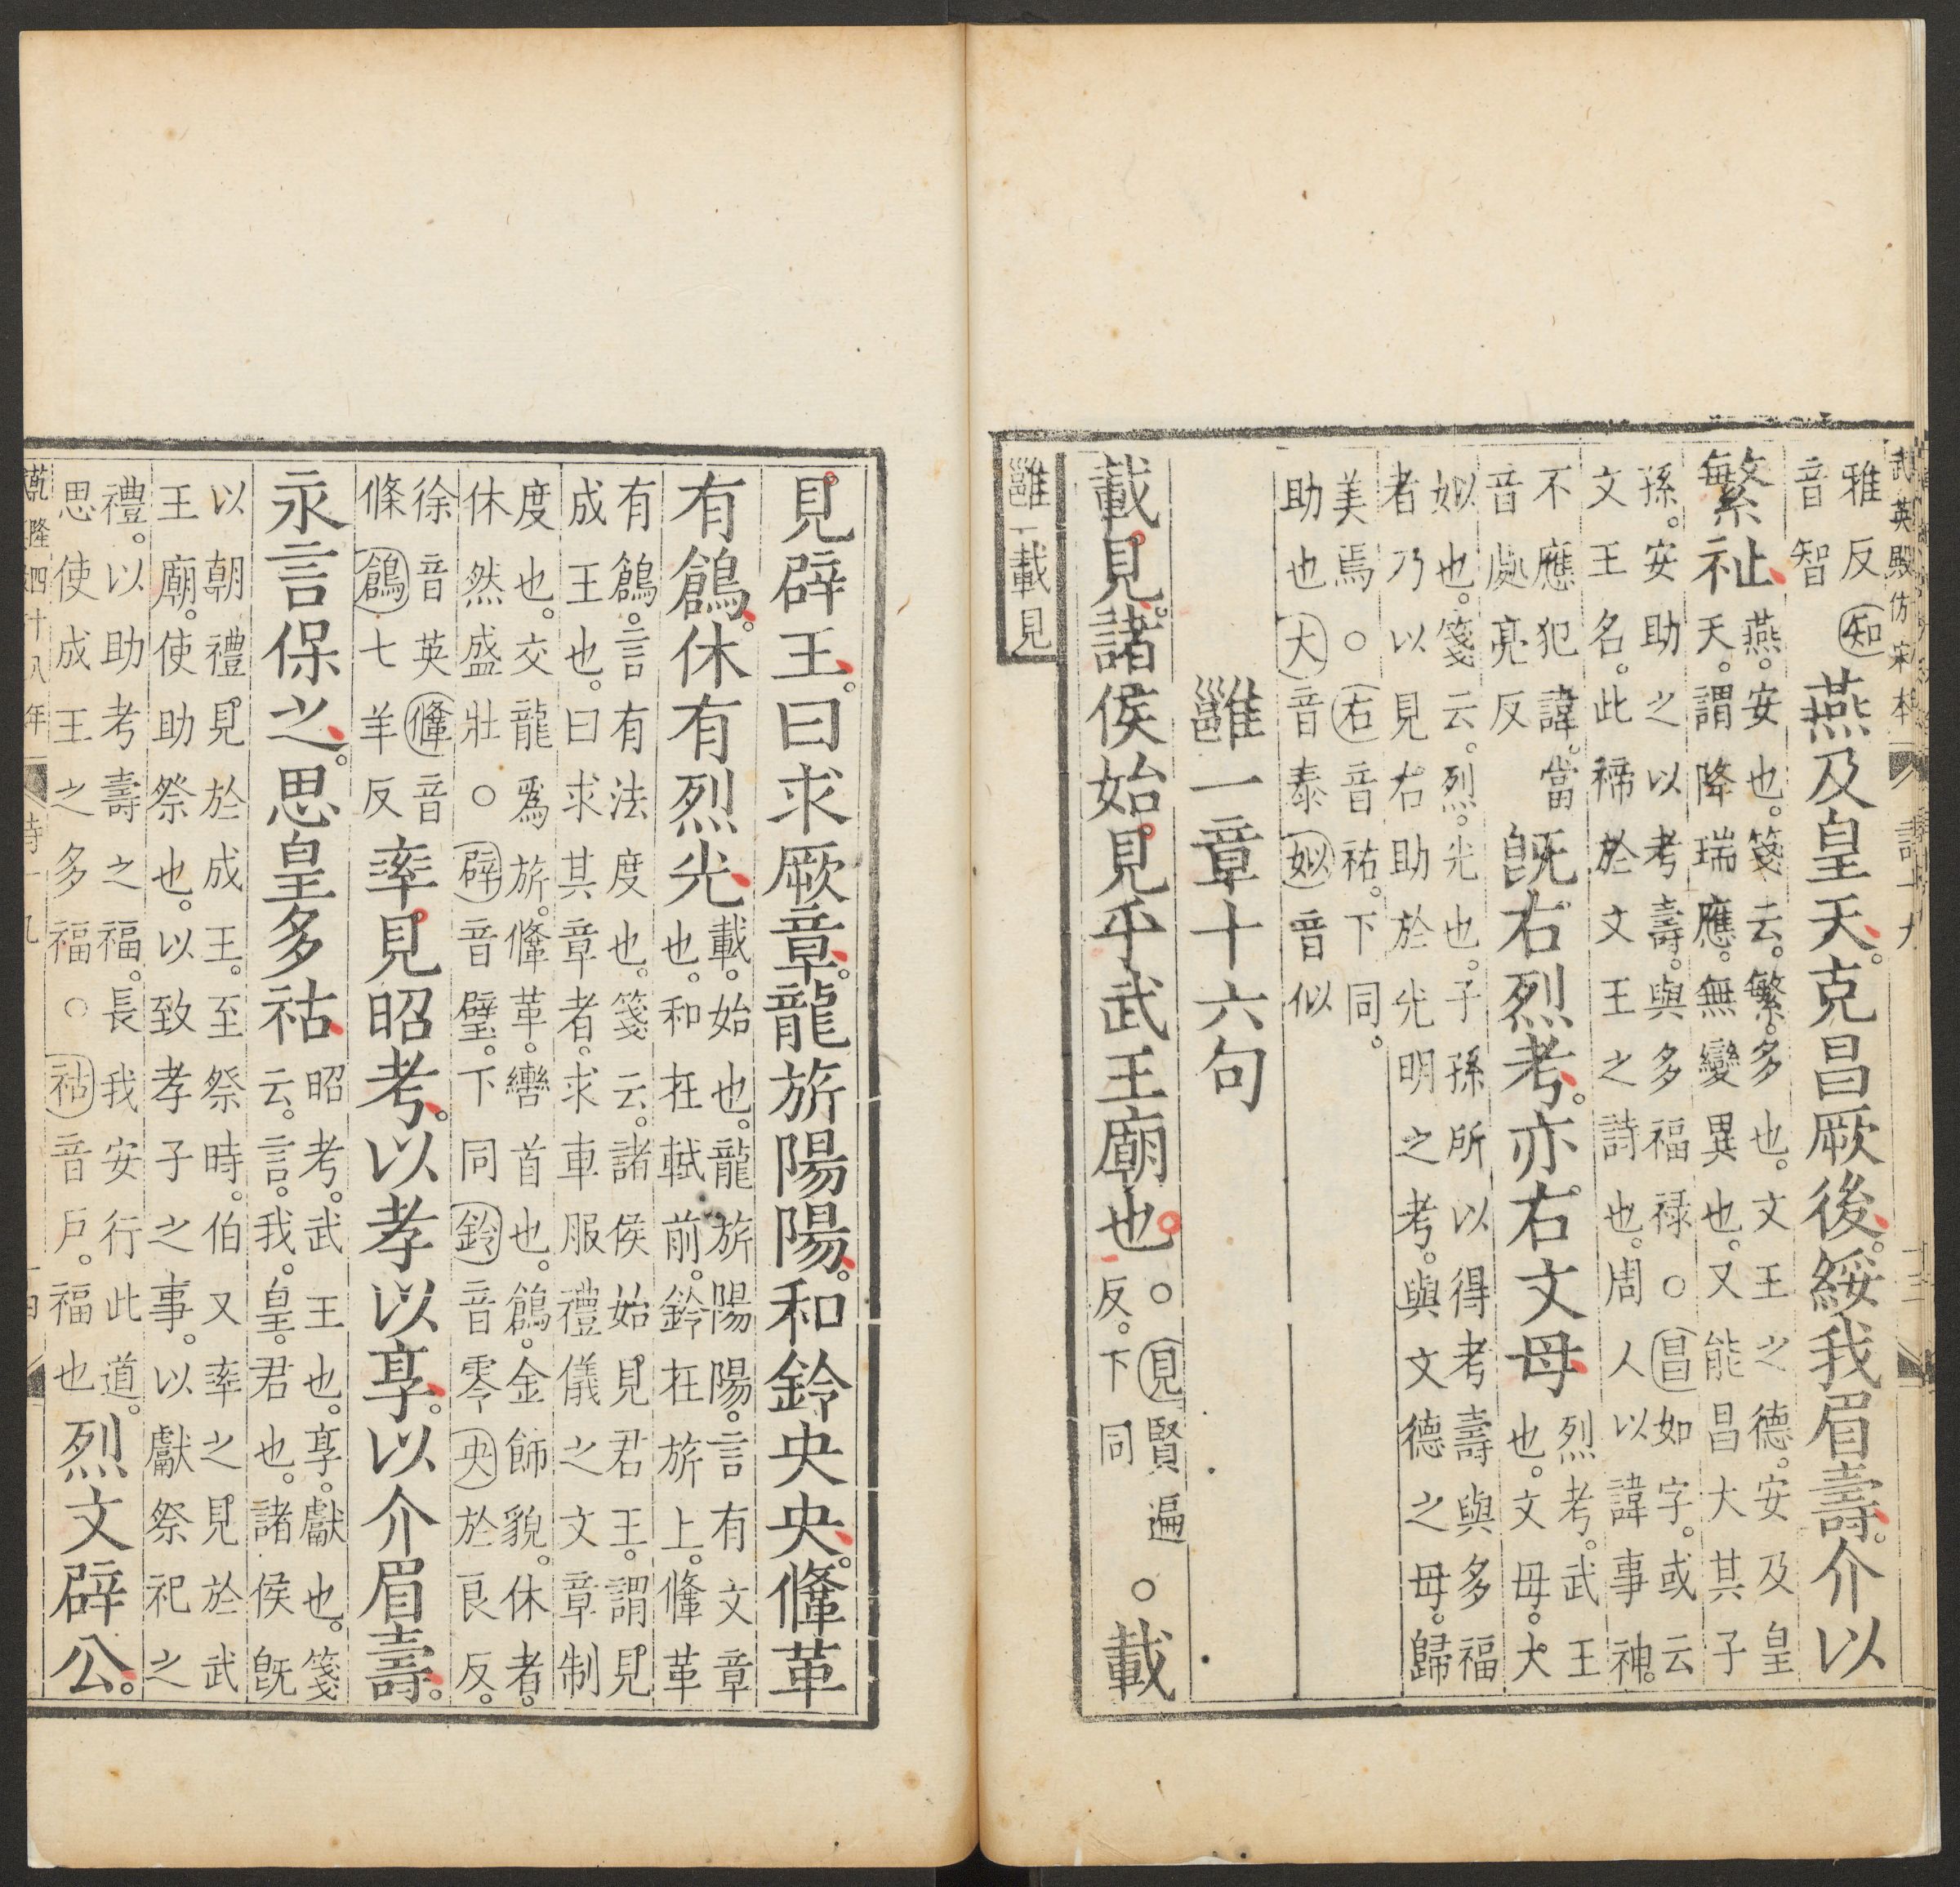 武英殿仿宋本
詩十九
十三
雅反㊗知
音智
燕及皇天。克昌厥後。綏我眉壽。介以
繁祉。燕。安也。箋云。繁。多也。文王之德。安及皇
天。謂降瑞應。無變異也。又能昌大其子
孫。安助之以考壽。與多福祿○昌如字。或云
文王名。此禘於文王之詩也。周人以諱事神。
不應犯諱。當
音處亮反
旣右烈考。亦右文母。烈考。武王
也。文母。大
姒也。箋云。烈。光也。子孫所以得考壽與多福
者乃以見右助於光明之考。與文德之母。歸
美焉○右音祐。下同。
助也大音泰姒音似
雝一章十六句
載見。諸侯始見乎武王廟也。○見賢遍
反。下同
○載
雝 載見
見辟王。曰求厥章。龍旂陽陽。和鈴央央。鞗革
有鶬。休有烈光。載。始也。龍旂陽陽。言有文章
也。和在軾前。鈴在旂上。鞗革
有鶬。言有法度也。箋云。諸侯始見君王。謂見
成王也。曰求其章者。求車服禮儀之文章制
度也。交龍爲旂。鞗革。轡首也。鶬。金飾貌。休者。
休然盛壯○辟音璧。下同鈴音零央於良反。
徐音英鞗音
條鶬七羊反
率見昭考。以孝以享。以介眉壽。
永言保之。思皇多祜。昭考。武王也。享。獻也。箋
云。言。我。皇。君也。諸侯旣
以朝禮見於成王。至祭時。伯又率之見於武
王廟。使助祭也。以致孝子之事。以獻祭祀之
禮。以助考壽之福。長我安行此道。
思使成王之多福○祜音戶。福也
烈文辟公。
乾隆四十八年